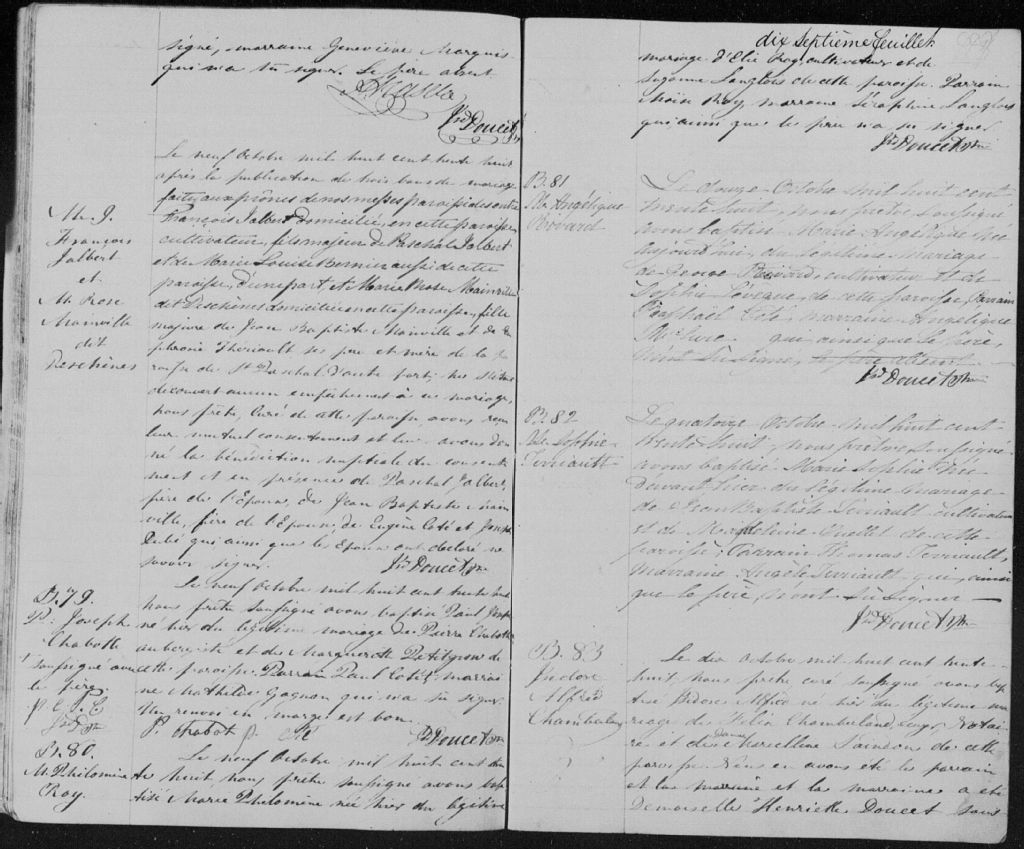 signé, marraine Geneviève Marquis
qui n'a su signer. Le père absent
Jos Doucet Ptre
M. 9.
François
Jalbert
et
M. Rose
Mainville
dit
Deschènes
Le neuf Octobre mil huit cent trente huit
après la publication de trois bans de mariage
faite aux prônes de nos messes paroissiales entre
François Jalbert domicilié, en cette paroisse,
cultivateur, fils majeur de Paschal Jalbert
et de Marie Louise Bernier aussi de cette
paroisse, d'une part, et Marie Rose Mainville
dit Deschènes domiciliée en cette paroisse, fille
majeure de Jean Baptiste Mainville et de
phrosie Thériault ses père et mère de la pa
roisse de St Paschal d'autre part; ne s'étant
découvert aucun empêchement à ce mariage,
nous prêtre, Curé de cette paroisse avons reçu
leur mutuel consentement et leur avons don
né la bénédiction nuptiale du consente
ment et en présence de Paschal Jalbert,
père de l'Epoux, de Jean Baptiste Main
ville, père de l'Epouse, de Eugène Coté et Joseph
Dubé qui ainsi que les Epoux ont declaré ne
pouvoir signer.
Jos Doucet Ptre
B. 79.
P. Joseph
Chabotte
soussigné avec
le père
Le neuf Octobre mil huit cent trente huit
nous prêtre soussigné avons baptisé Paul Joseph
né hier du légitime mariage de Pierre Chabotte
aubergiste et de Marguerite Petitgrew de
cette paroisse. Parrain Paul Coté, marrai
ne Mathilde Gagnon qui n'a su signer.
Un renvoi en marge est bon.
P. Chabot
Jos Doucet Ptre
B. 80.
M. Philomène
Roy.
Le neuf Octobre mil huit cent tren
te huit nous prêtre soussigné avons bap
tisé Marie Philomène née hier du légitime
dix septième feuillet
mariage d'Elie Roy, cultivateur et de
Suzanne Langlois de cette paroisse. Parrain
Moïse Roy, marraine Séraphine Langlois
qui, ainsi que le père n'a su signer.
Jos Doucet Ptre
B. 81
Me Angélique
Le douze Octobre mil huit cent
trente huit, nous prêtre soussigné
avons baptisé Marie Angélique née
aujourd'hui, du légitime mariage
de George cultivateur et de
Sophie Lévêque, de cette paroisse, Parrain
Raphael Coté, marraine Angélique
qui ainsi que le père,
n'ont su signer,
Jos Doucet Ptre
B. 82
Me Sophie
Terriault
Le quatorze Octobre mil huit cent
trente huit, nous prêtre soussigné
avons baptisé Marie Sophie née
devant hier du légitime mariage
de Jean Baptiste Terriault cultivateur
et de Magdeleine Ouellet de cette
paroisse; Parrain Thomas Terriault,
Marraine Angèle Terriault qui, ainsi
que le père, n'ont su signer
Jos Doucet Ptre
B. 83
Isidore
Alfred
Chamberland
Le dix octobre mil huit cent trente
huit nous prêtre curé soussigné avons bap
tisé Isidore Alfred né hier du légitime ma
riage de Félix Chamberland, Ecuyer, Notai
re et de Dame Marcelline Saindon de cette
paroisse. Nous en avons été le parrain
et la marraine a été
Demoiselle Henriette Doucet sous